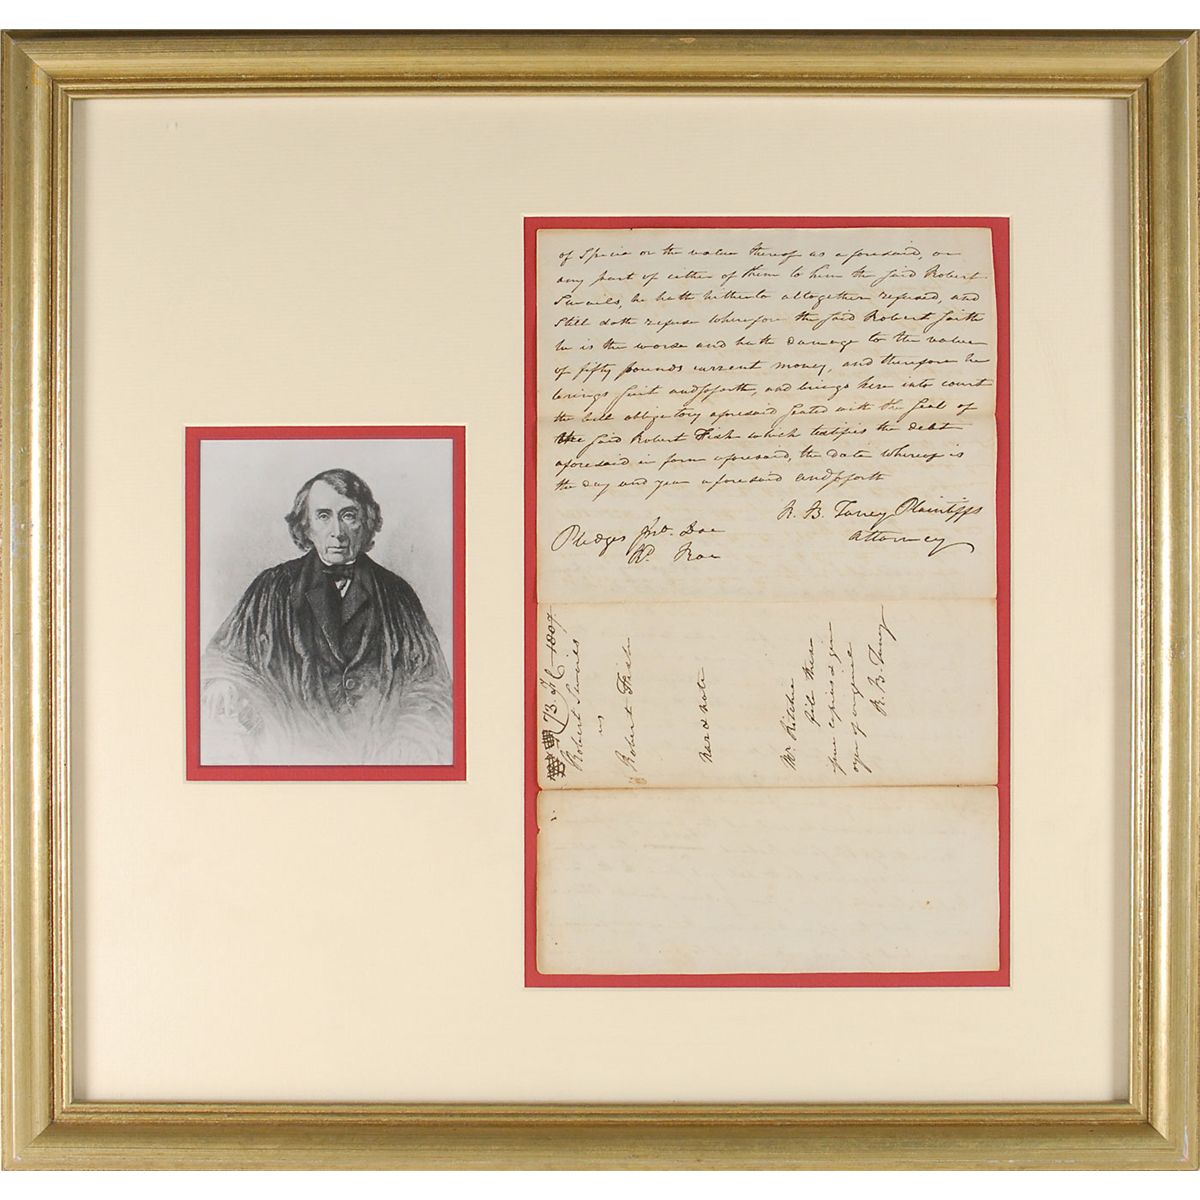 of Specie or the value thereof as aforesaid, or
any part of either of them to him the said Robert
Swailes, he hath hitherto altogether refused, and
still doth refuse wherefore the said Robert saith
he is the worse and hath damage to the value
of fifty pounds current money, and therefore he
brings suit andsoforth, and brings here into court
the bill obligatory aforesaid sealed with the seal of
the said Robert Fish which testifies the debt
aforesaid in form aforesaid, the date whereof is
the day and year aforesaid andsoforth
R. B. Taney Plaintiffs
Attorney
Pledges Jno. Doe
Rd. Roe
1807
Robert Swailes
vs
Robert Fish
Narr & note
Mr. Ritchie
file these
give copies & give
oyer of original
R. B. Taney